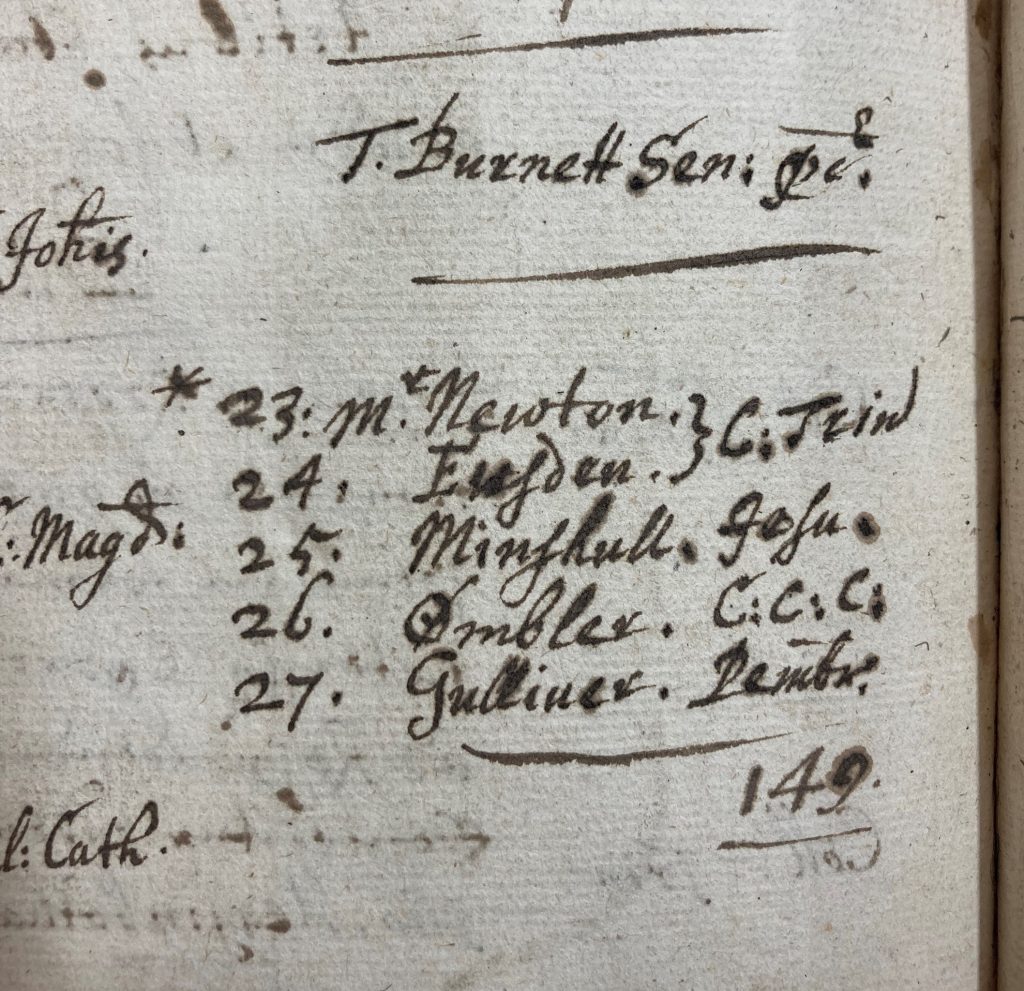 T. Burnett Sen: 
Johis.
* 23: Mr. Newton. } C: Trin
24. Eusden.
C: Magd:
25. Minshull. Jesu.
26. Ombler. C: C: C:
27. Gulliver. Pembr.
149.
l: Cath.